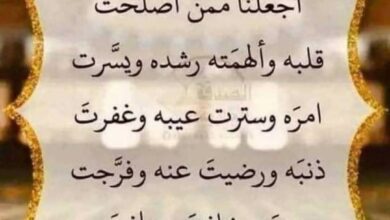 اجعلنا ممن أصلحت
قلبه وألهمَته رشده ويسَّرت
امرَه وسترت عيبه وغفرتَ
ذنبَه ورضيتَ عنه وفرَّجت